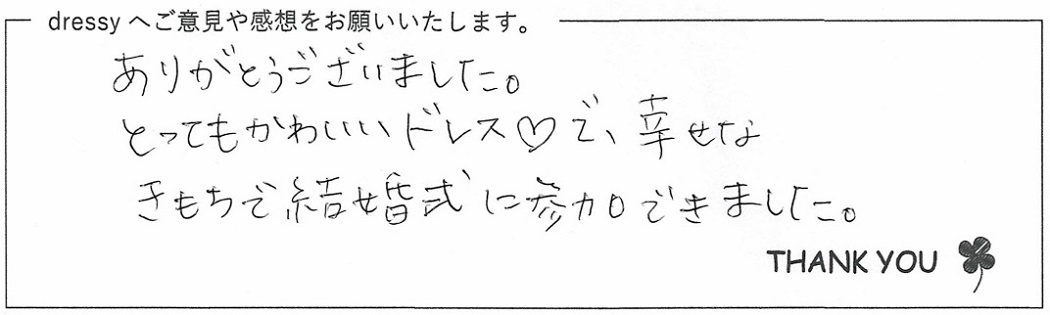 dressy へご意見や感想をお願いいたします。
ありがとうございました。
とってもかわいいドレス♡で、幸せな
きもちで結婚式に参加できました。
THANK YOU